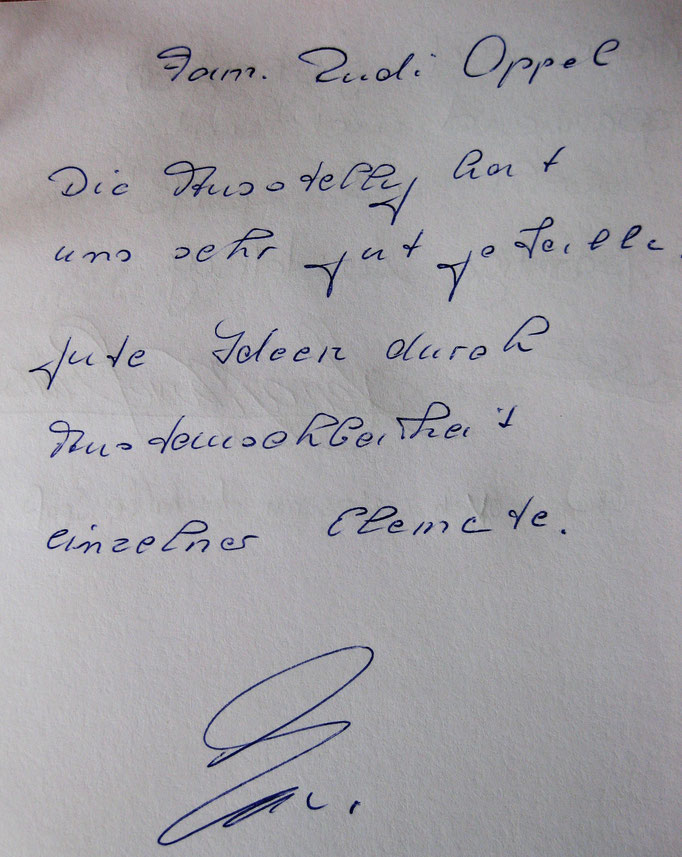 Fam. Rudi Oppel
Die Ausstellg hat
uns sehr gut gefalle.
gute Ideen durch
Austauschbarkeit
einzelner Elemente.